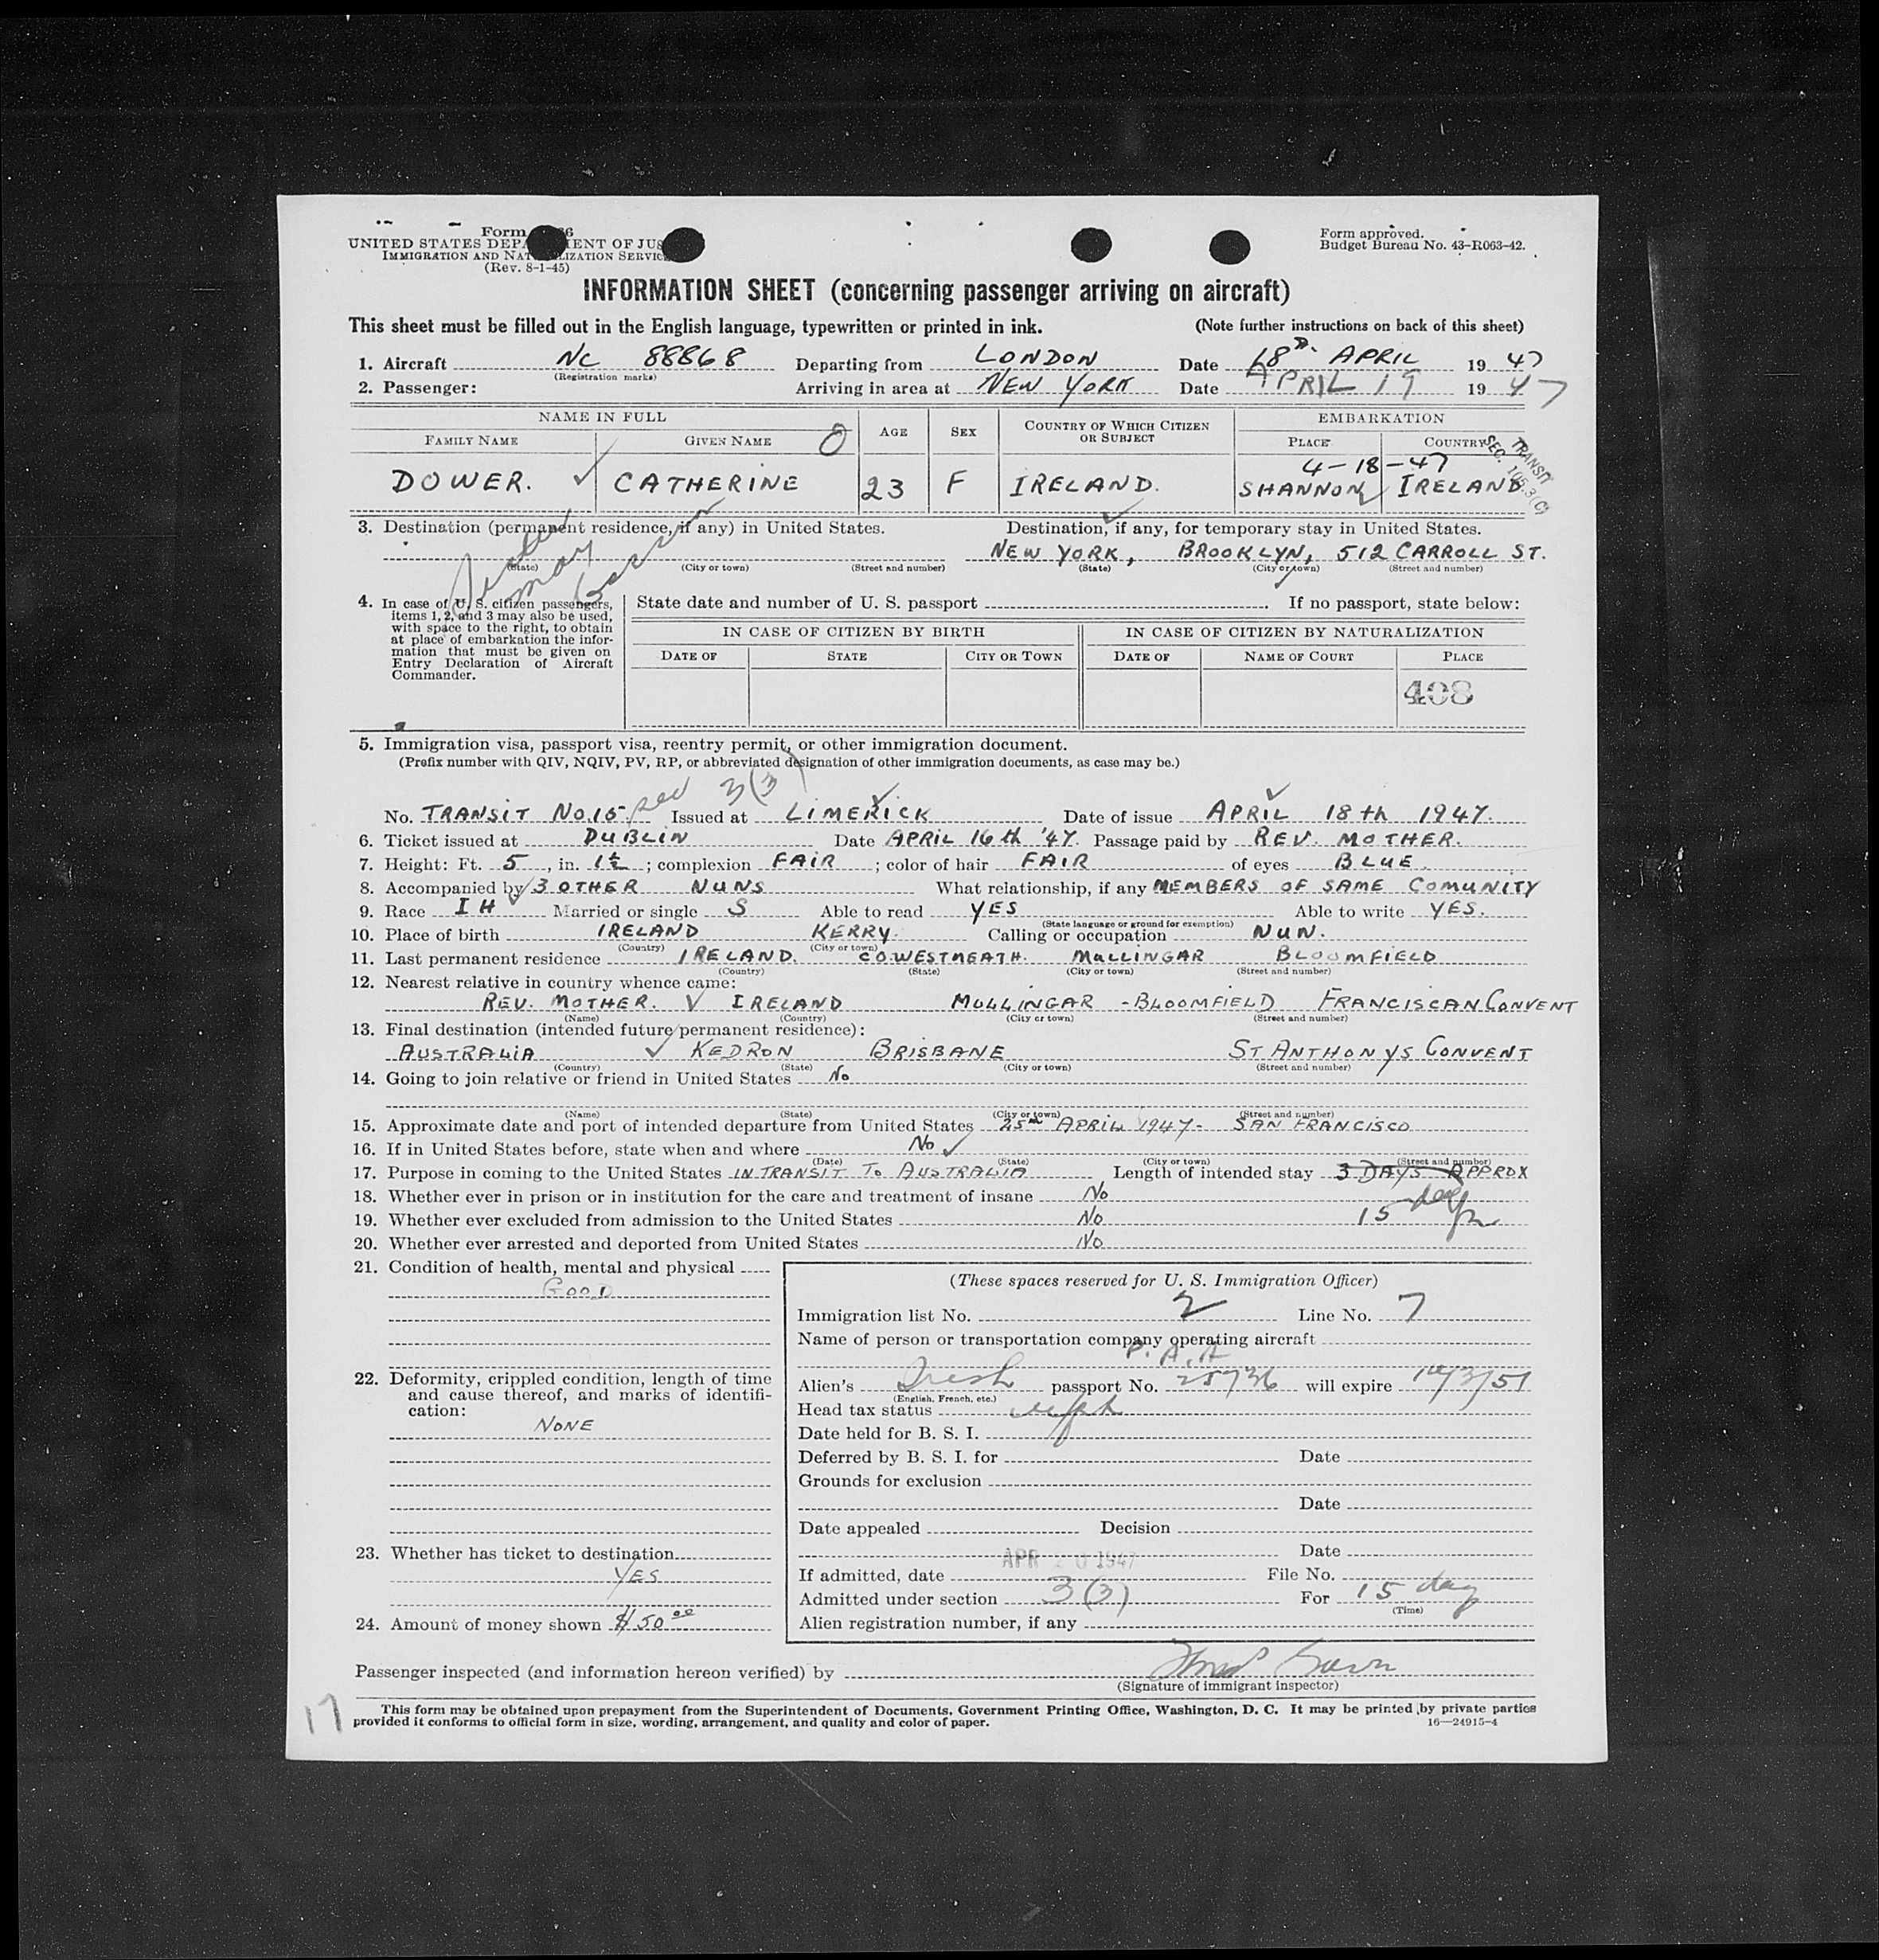 Form 66
UNITED STATES DEPA MENT OF JUS
IMMIGRATION AND NAT LIZATION SERVIC
(Rev. 8-1-45)
Form approved.
Budget Bureau No. 43-R063-42.
INFORMATION SHEET (concerning passenger arriving on aircraft)
This sheet must be filled out in the English language, typewritten or printed in ink. (Note further instructions on back of this sheet)
1. Aircraft NC 88868 Departing from LONDON Date 18TH APRIL 19 47
(Registration marks)
2. Passenger: Arriving in area at NEW YORK Date APRIL 19 19 47
NAME IN FULL AGE SEX COUNTRY OF WHICH CITIZEN OR SUBJECT EMBARKATION
FAMILY NAME GIVEN NAME PLACE COUNTRY
TRANSIT SEC. 105.3(C)
4-18-47
DOWER. CATHERINE 23 F IRELAND. SHANNON IRELAND
3. Destination (permanent residence, if any) in United States. Destination, if any, for temporary stay in United States.
NEW YORK, BROOKLYN, 512 CARROLL ST.
(State) (City or town) (Street and number) (State) (City or town) (Street and number)
4. In case of U. S. citizen passengers, items 1, 2, and 3 may also be used, with space to the right, to obtain at place of embarkation the information that must be given on Entry Declaration of Aircraft Commander.
State date and number of U. S. passport If no passport, state below:
IN CASE OF CITIZEN BY BIRTH IN CASE OF CITIZEN BY NATURALIZATION
DATE OF STATE CITY OR TOWN DATE OF NAME OF COURT PLACE
408
5. Immigration visa, passport visa, reentry permit, or other immigration document.
(Prefix number with QIV, NQIV, PV, RP, or abbreviated designation of other immigration documents, as case may be.)
3(3)
No. TRANSIT No. 15 Issued at LIMERICK Date of issue APRIL 18th 1947.
6. Ticket issued at DUBLIN Date APRIL 16th '47. Passage paid by REV. MOTHER.
7. Height: Ft. 5, in. 1½; complexion FAIR; color of hair FAIR of eyes BLUE
8. Accompanied by 3 OTHER NUNS What relationship, if any MEMBERS OF SAME COMUNITY
9. Race IH Married or single S Able to read YES Able to write YES.
(State language or ground for exemption)
10. Place of birth IRELAND KERRY. Calling or occupation NUN.
(Country) (City or town)
11. Last permanent residence IRELAND. CO. WESTMEATH. MULLINGAR BLOOMFIELD
(Country) (State) (City or town) (Street and number)
12. Nearest relative in country whence came:
REV. MOTHER. IRELAND MULLINGAR - BLOOMFIELD FRANCISCAN CONVENT
(Name) (Country) (City or town) (Street and number)
13. Final destination (intended future permanent residence):
AUSTRALIA KEDRON BRISBANE ST ANTHONYS CONVENT
(Country) (State) (City or town) (Street and number)
14. Going to join relative or friend in United States No
(Name) (State) (City or town) (Street and number)
15. Approximate date and port of intended departure from United States 25TH APRIL 1947 - SAN FRANCISCO
16. If in United States before, state when and where No
(Date) (State) (City or town) (Street and number)
17. Purpose in coming to the United States IN TRANSIT TO AUSTRALIA Length of intended stay 3 DAYS APPROX
18. Whether ever in prison or in institution for the care and treatment of insane No
19. Whether ever excluded from admission to the United States No 15 days
20. Whether ever arrested and deported from United States No
21. Condition of health, mental and physical
GOOD
22. Deformity, crippled condition, length of time and cause thereof, and marks of identification:
NONE
23. Whether has ticket to destination
YES
24. Amount of money shown $150 00
(These spaces reserved for U. S. Immigration Officer)
Immigration list No. 2 Line No. 7
Name of person or transportation company operating aircraft
P. A. A
Alien's Irish passport No. 25736 will expire
(English, French, etc.)
Head tax status
Date held for B. S. I.
Deferred by B. S. I. for Date
Grounds for exclusion
Date
Date appealed Decision
Date
APR 20 1947
If admitted, date File No.
Admitted under section 3(3) For 15 day
(Time)
Alien registration number, if any
Passenger inspected (and information hereon verified) by
(Signature of immigrant inspector)
17
This form may be obtained upon prepayment from the Superintendent of Documents, Government Printing Office, Washington, D. C. It may be printed by private parties
provided it conforms to official form in size, wording, arrangement, and quality and color of paper. 16—24915-4